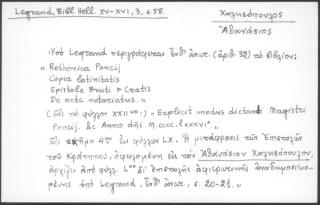 Legrand, Bibl. Hell. XV-XVI, 3, σ. 58.
Χαλκεόπουλος
Ἀθανάσιος
Ὑπὸ Legrand περιγράφεται ἔνθ' ἀνωτ. (ἀριθ. 32) τὸ βιβλίον:
" Rethorica Poncij
Copia latinitatis
Epistole Bruti & Cratis
De arte notariatus. "
( Εἰς τὸ φύλλον XXII : ) " Explicit modus dictandi Magistri
Poncij. &c Anno dñi M.cccc.lxxxvi° "
Εἰς σχῆμα 4ον ἐκ φύλλων LX. Ἡ μετάφρασις τῶν Ἐπιστολῶν
τοῦ Κράτητος, ὀφειλομένη εἰς τὸν Ἀθανάσιον Χαλκεόπουλον,
ἀρχίζει ἀπὸ φύλλ. L δι' ἐπιστολῆς ἀφιερωτικῆς ἀναδημοσιευο-
μένης ὑπὸ Legrand, ἔνθ' ἀνωτ., σ. 20-21. "